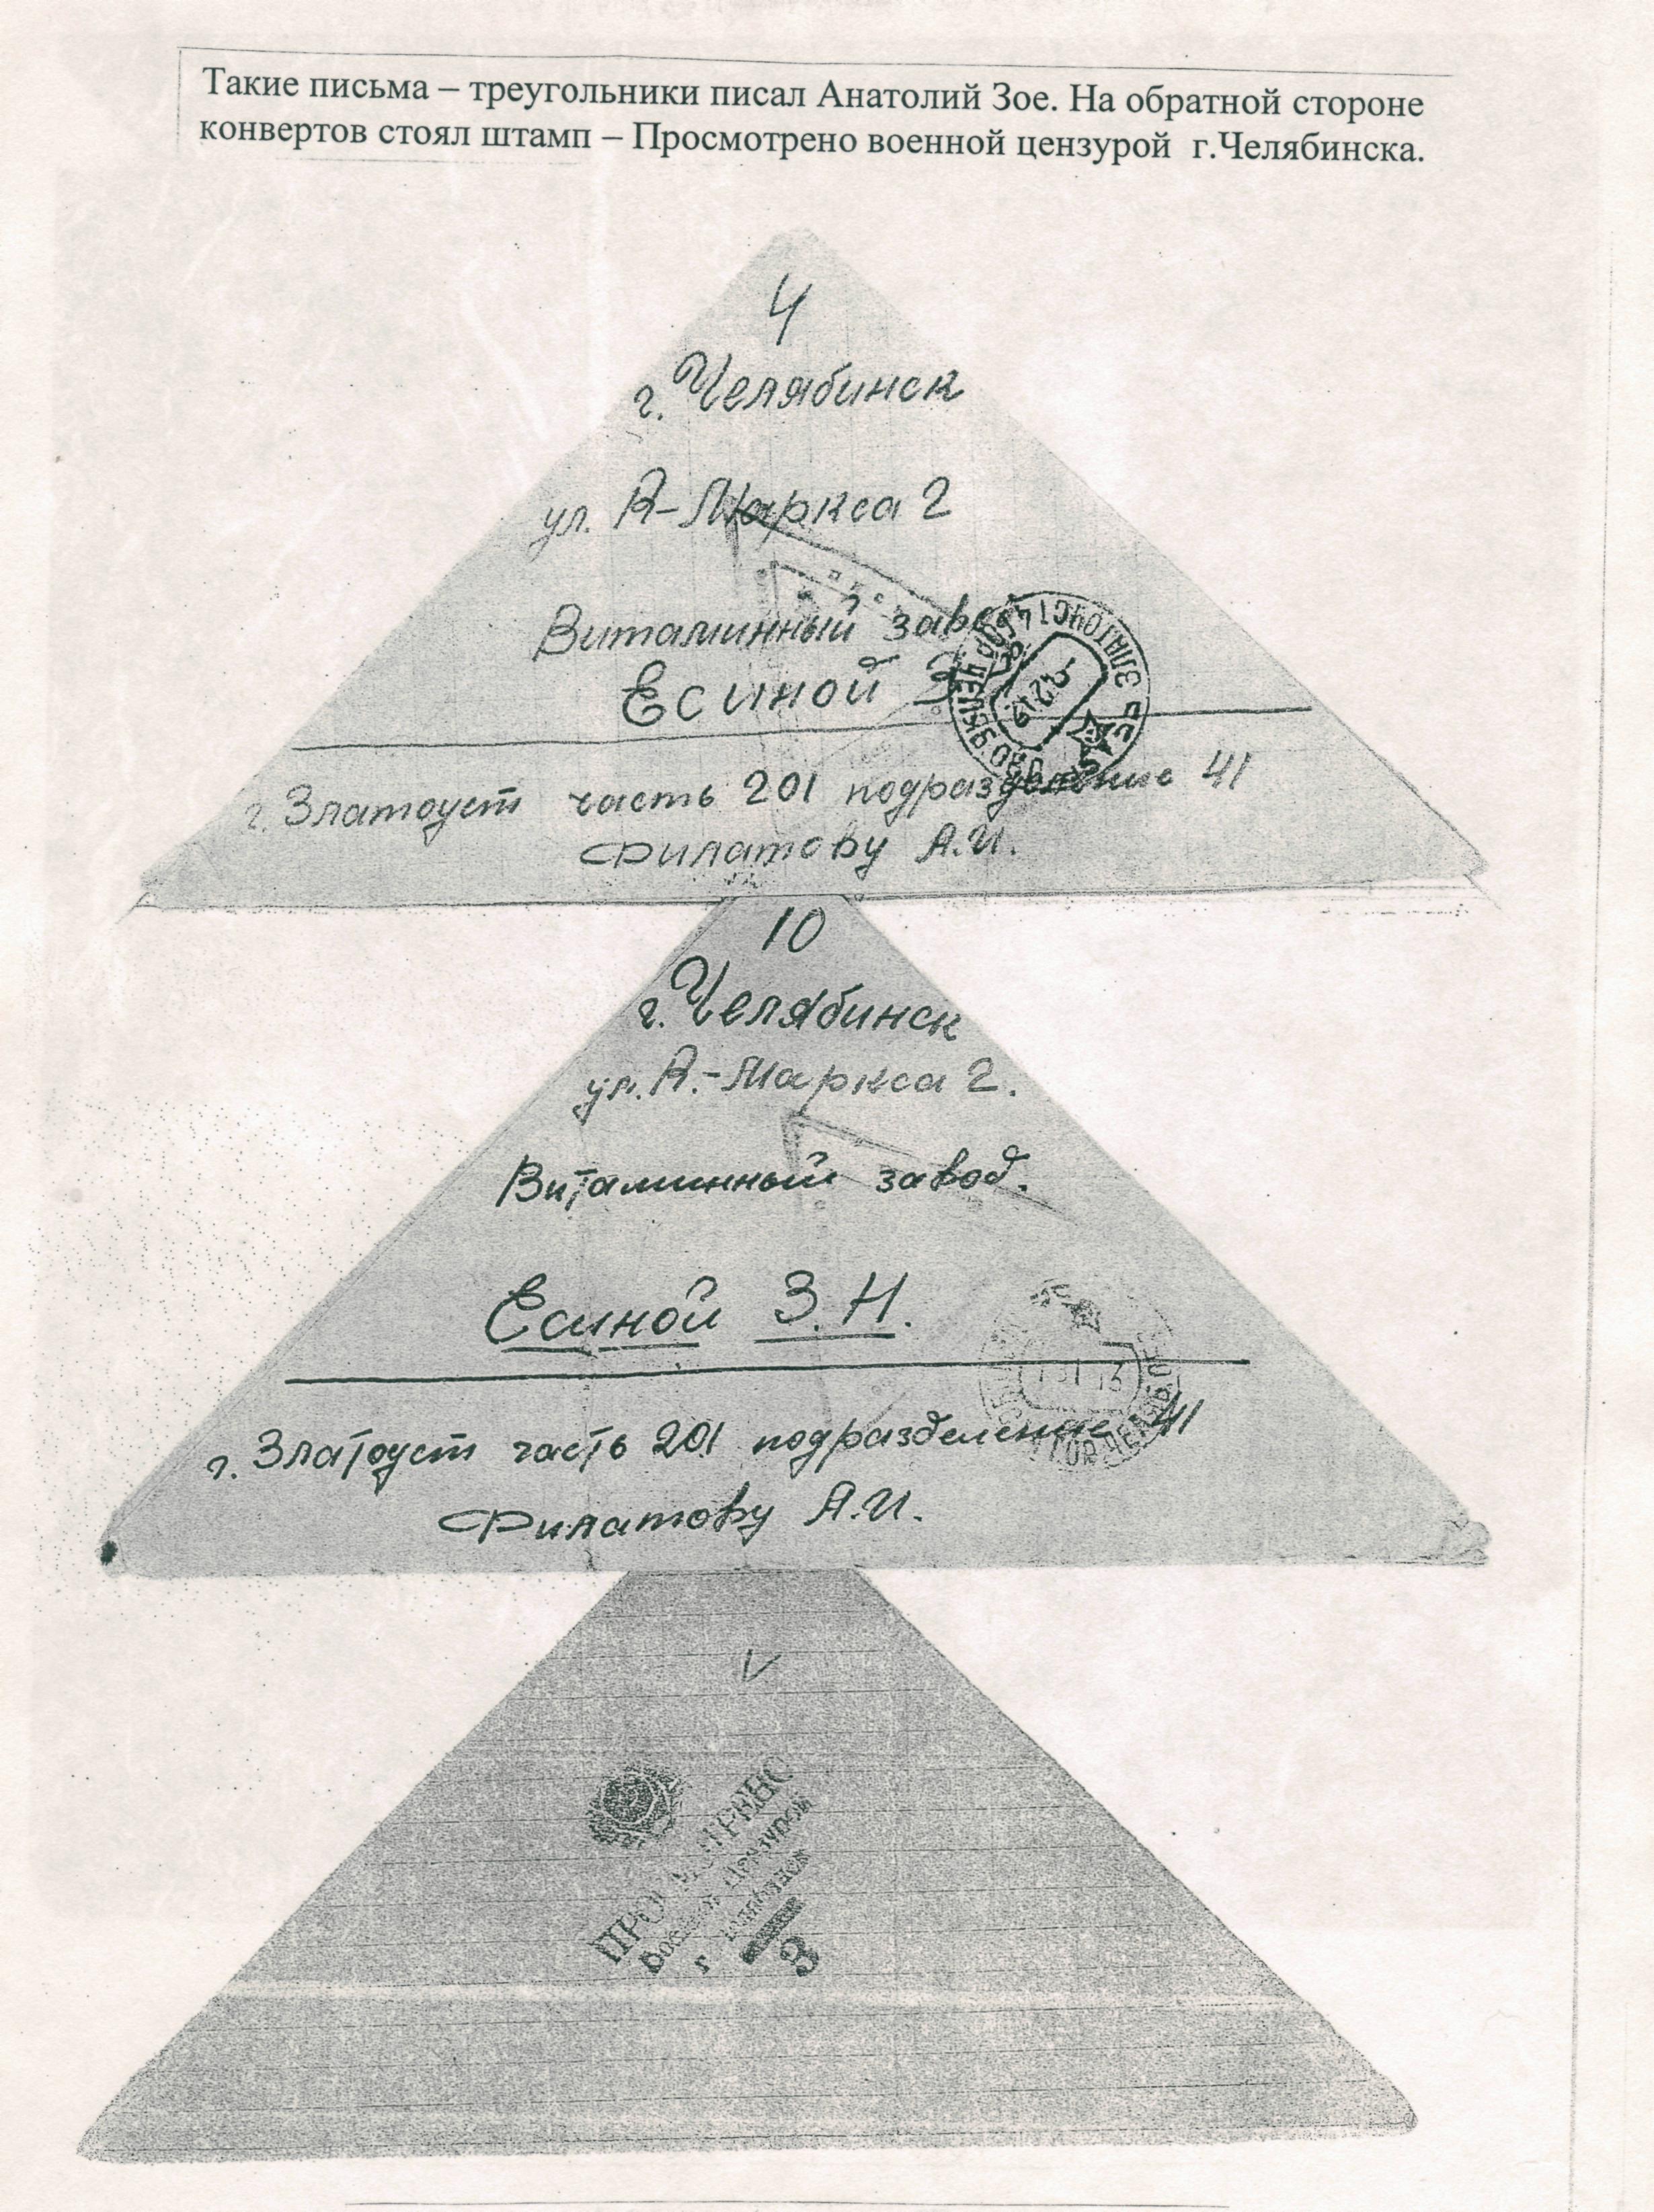 Такие письма – треугольники писал Анатолий Зое. На обратной стороне
конвертов стоял штамп – Просмотрено военной цензурой г.Челябинска.
4
г. Челябинск
ул. К-Маркса 2
Витаминный завод
Есиной З
г. Златоуст часть 201 подразделение 41
Филатову А.И.
10
г. Челябинск
ул. К.-Маркса 2.
Витаминный завод.
Есиной З.Н.
г. Златоуст часть 201 подразделение 41
Филатову А.И.
ПРОСМОТРЕНО
военной цензурой
г
3